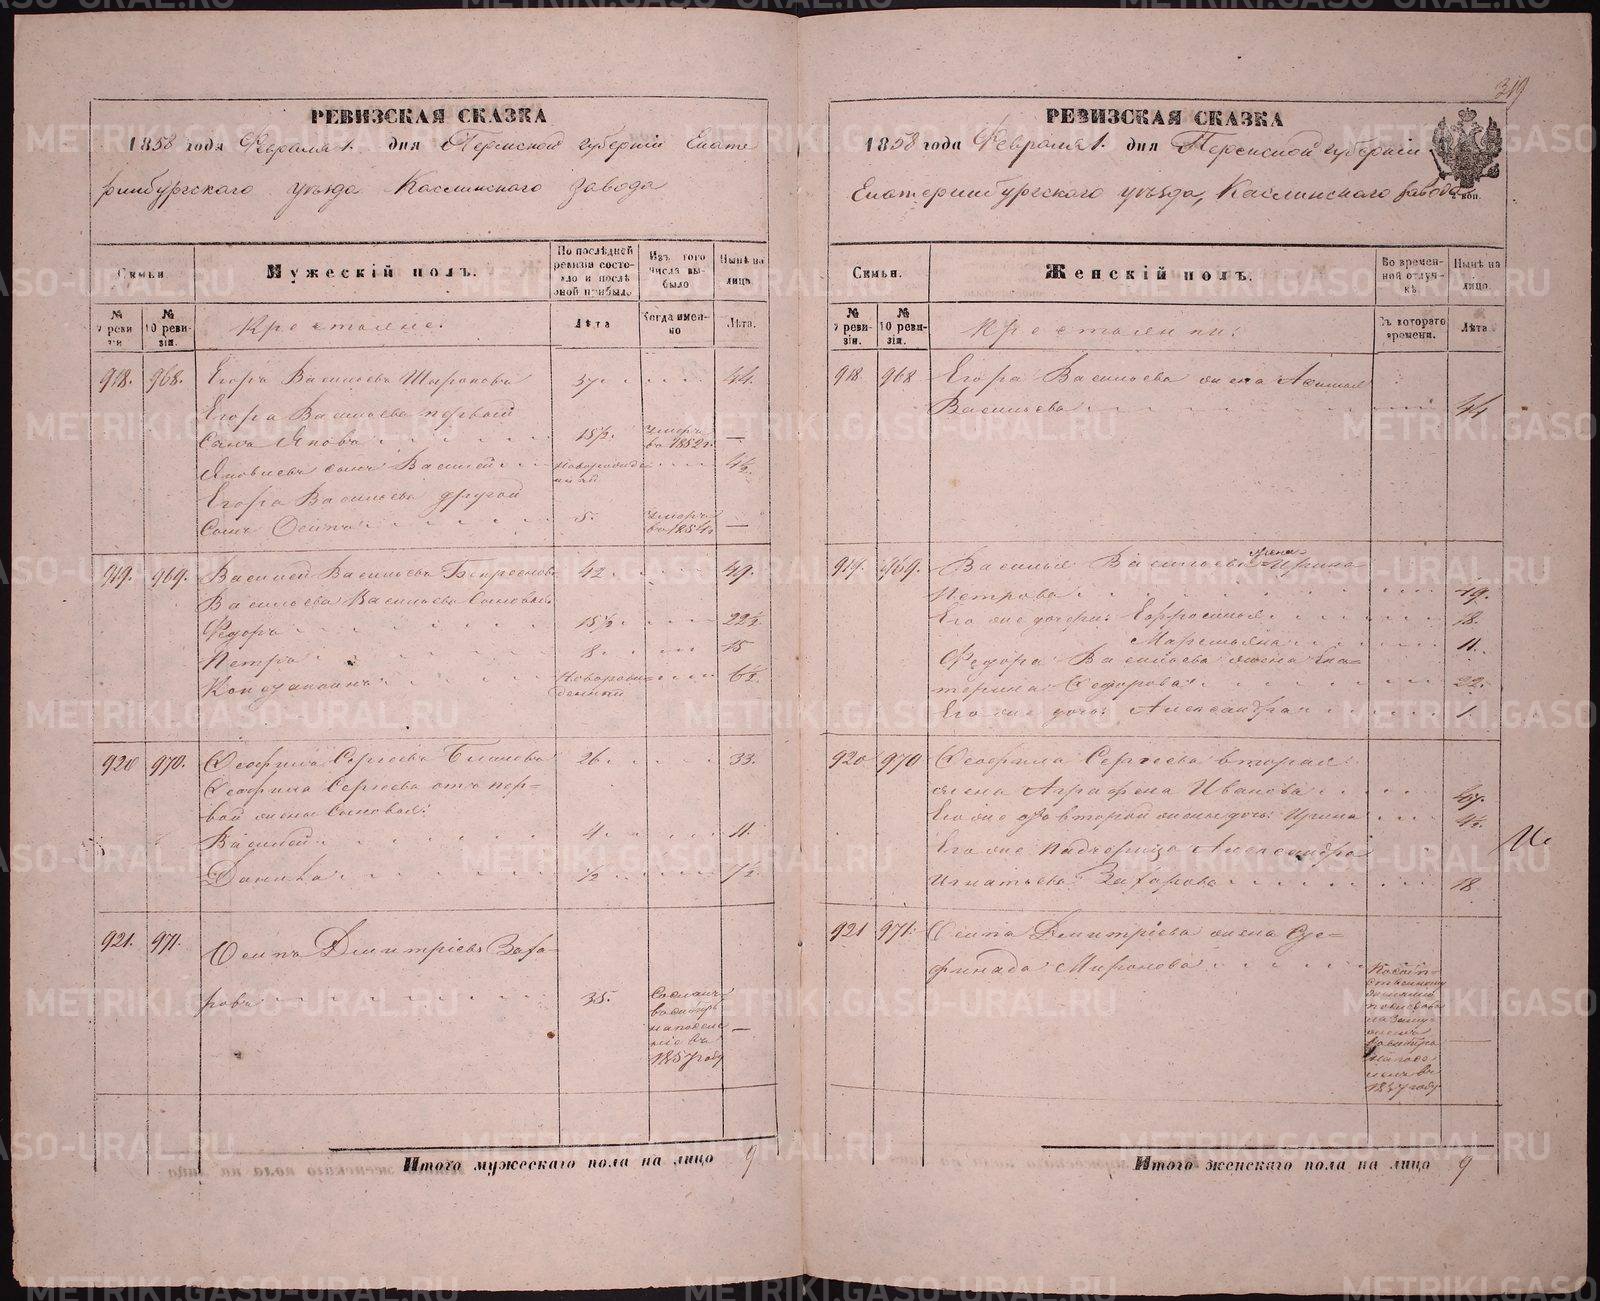 319
РЕВИЗСКАЯ СКАЗКА
1858 года Февраля 1. дня Пермской губернии Екате
ринбургского уѣзда Каслинского завода
Семьи
Мужескій полъ.
По послѣдней ревизіи состояло и послѣ оной прибыло
Изъ того числа выбыло
Нынѣ на лицо
№ 9 ревизіи
№ 10 ревизія.
Крестьяне.
Лѣта
Когда именно
Лѣта.
918. 968. Егоръ Васильевъ Широковъ 37. 44.
Егора Васильева первый
Сынъ Яковъ 15½. умеръ въ 1852 г. —
Яковлевъ сынъ Василей новорожденный 4½.
Егора Васильева другой
Сынъ Осипъ 5. умеръ въ 1854 г. —
919. 969. Василей Васильевъ 42. 49.
Васильева Васильева Сыновья
Федоръ 15½. 22½.
Петръ 8. 15
Константинъ Новорожденный 6½.
920 970. Феофилъ Сергѣевъ 26. 33.
Феофила Сергѣева отъ пер-
вой жены Сыновья:
Василей 4. 11.
Данила ½. 7½.
921. 971. Осипъ Дмитріевъ Заха-
ровъ 35. Сосланъ въ Сибирь на поселеніе въ 1857 году —
Итого мужескаго пола на лицо 9
РЕВИЗСКАЯ СКАЗКА
1858 года Февраля 1. дня Пермской губерніи
Екатеринбургского уѣзда, Каслинского завода
коп.
Семьи.
Женскій полъ.
Во временной отлучкѣ
Нынѣ на лицо.
№ 9 ревизіи.
№ 10 ревизіи.
Крестьянки:
Съ котораго времени.
Лѣта.
918 968 Егора Васильева жена Аксинья
Васильева 44
919. 969. Василья Васильева жена Ирина
Петрова 49.
Его же дочери: Ефросинья 18.
Маремьяна 11.
Федора Васильева жена Ека-
терина Федорова 22.
Его же дочь Александра 1.
920 970 Феофила Сергѣева вторая
жена Аграфена Иванова 47.
Его же отъ второй жены дочь Ирина 4½.
Его же Падчерица Александра
Игнатьева Захарова 18
921 971. Осипа Дмитріева жена
Миронова
въ 1857 году —
Итого женскаго пола на лицо 9
METRIKI.GASO-URAL.RU